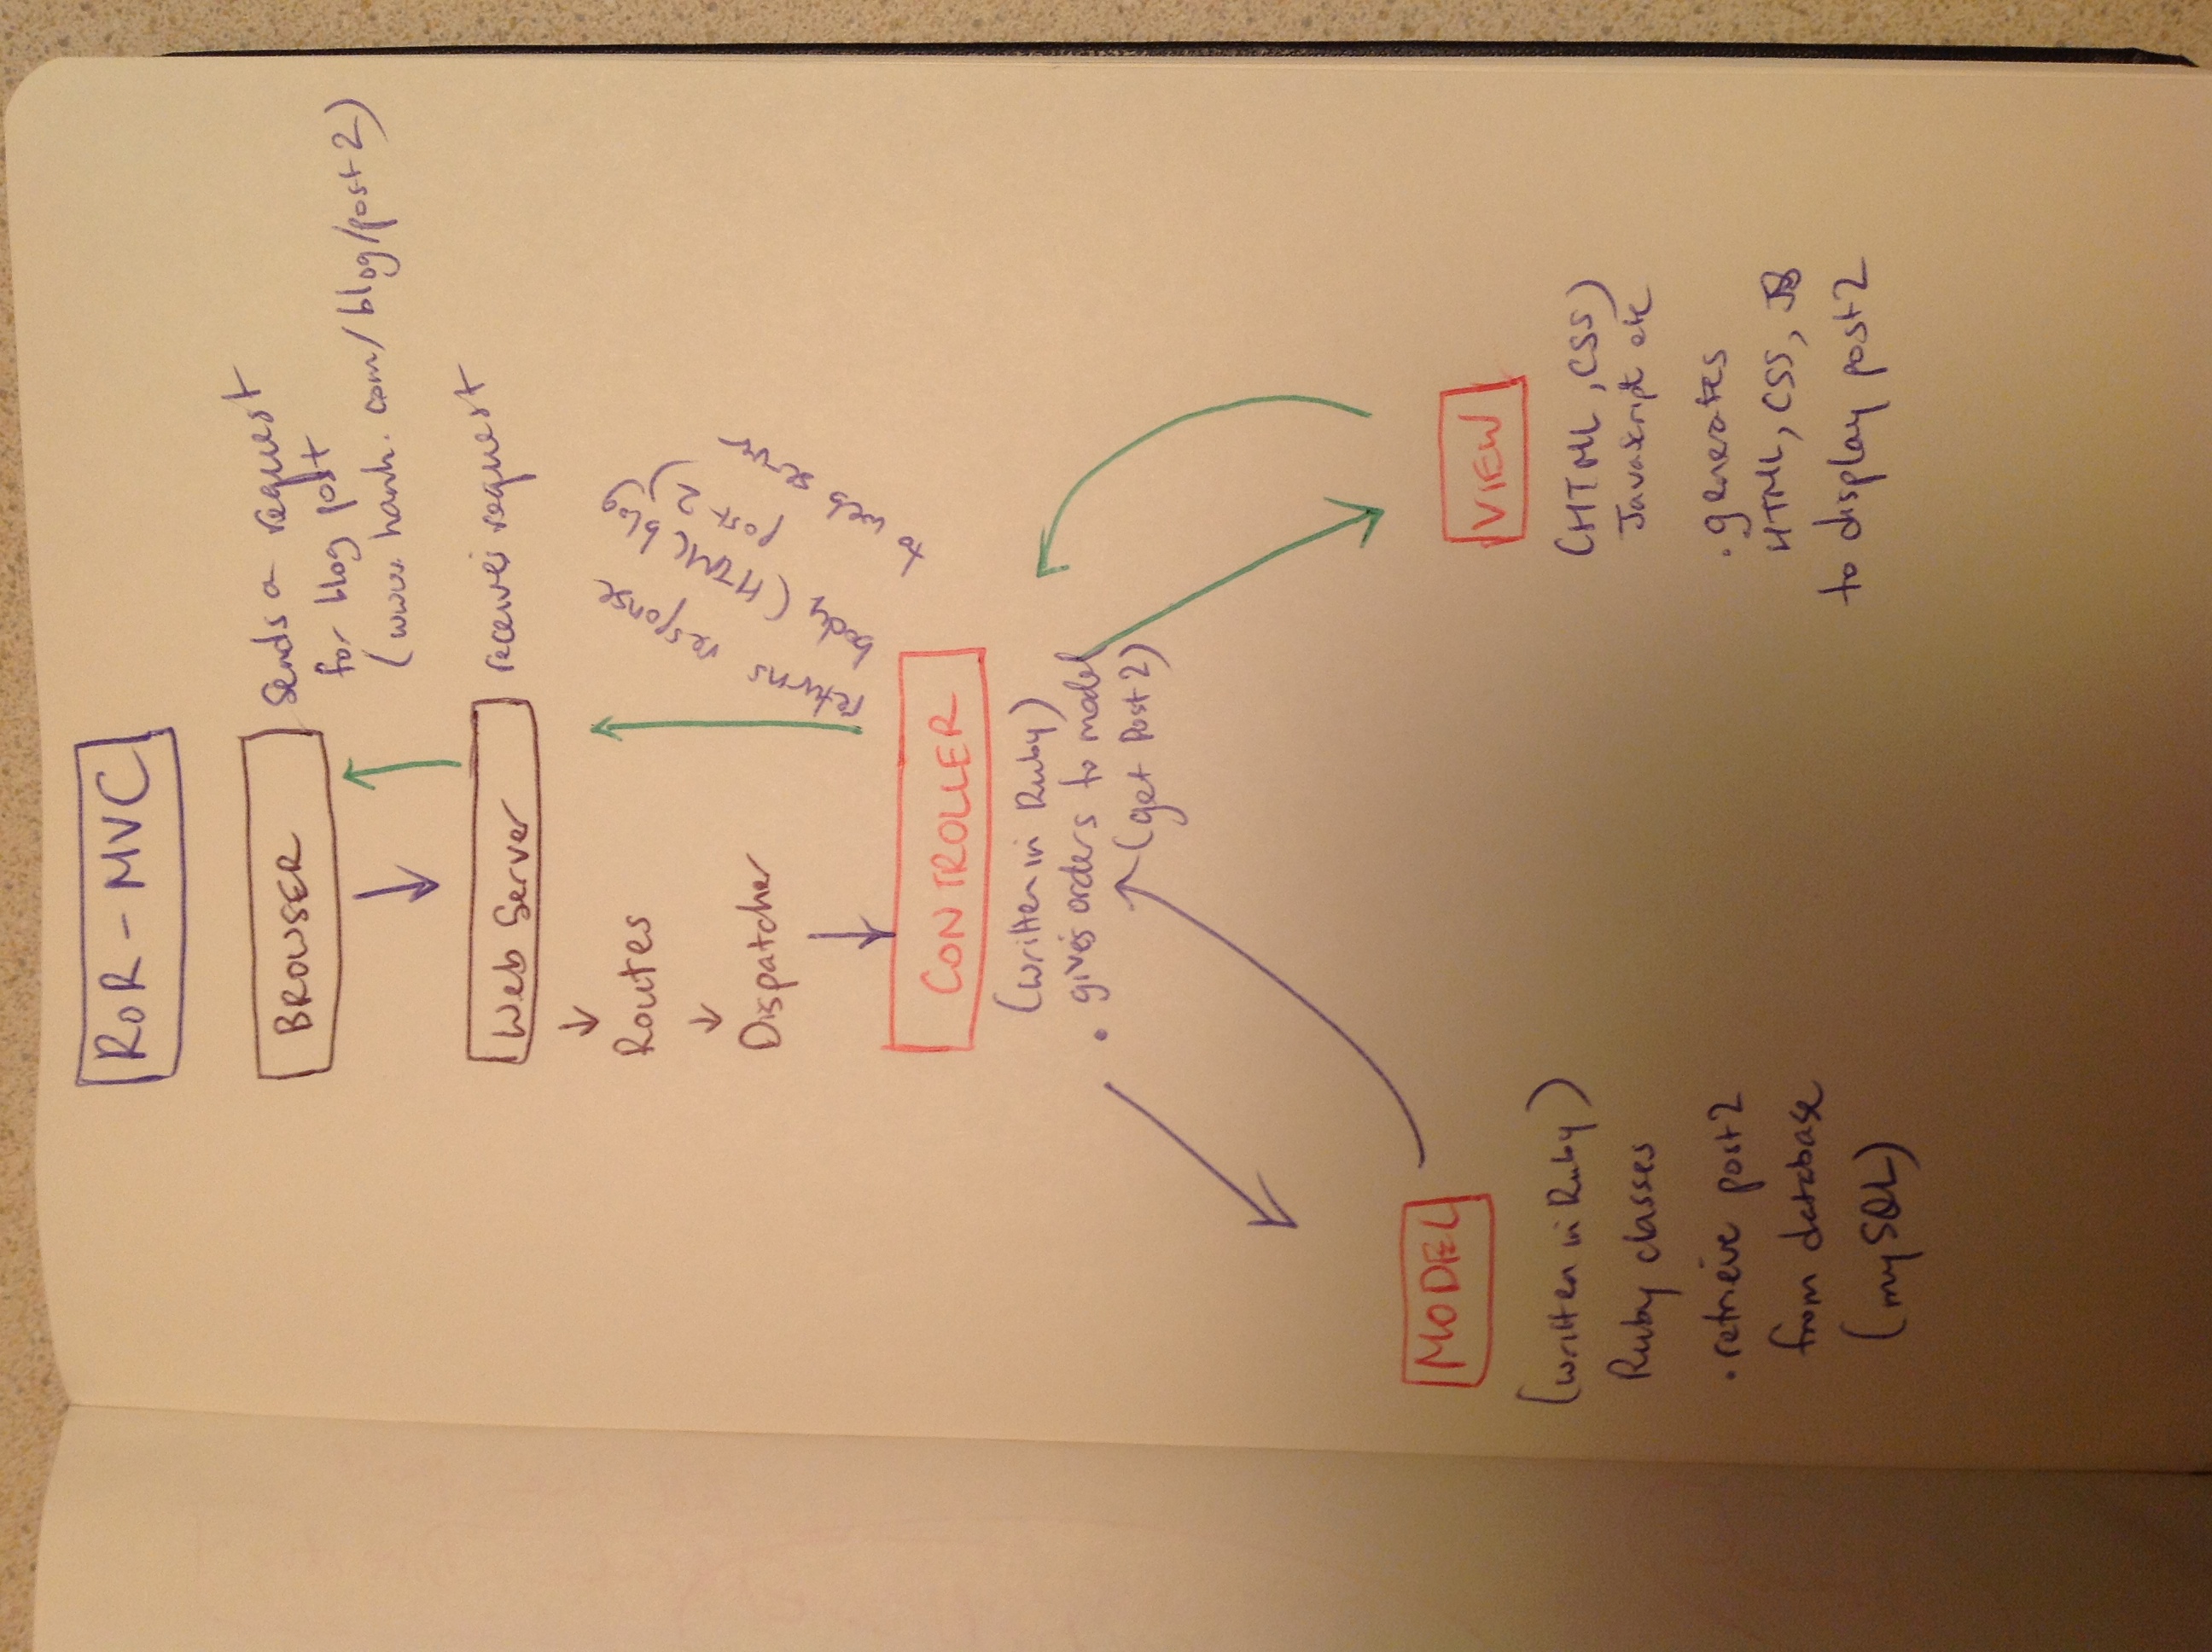 RoR - MVC
BROWSER
Sends a request
for blog post
(www.hanh.com/blog/post2)
Web Server
receives request
Routes
Dispatcher
returns response
body (HTML blog
post 2)
to web server
CONTROLLER
(written in Ruby)
. gives orders to model
(get Post 2)
MODEL
(written in Ruby)
Ruby classes
. retrieve post 2
from database
(mySQL)
VIEW
(HTML, CSS)
Javascript etc
. generates
HTML, CSS, JS
to display post 2